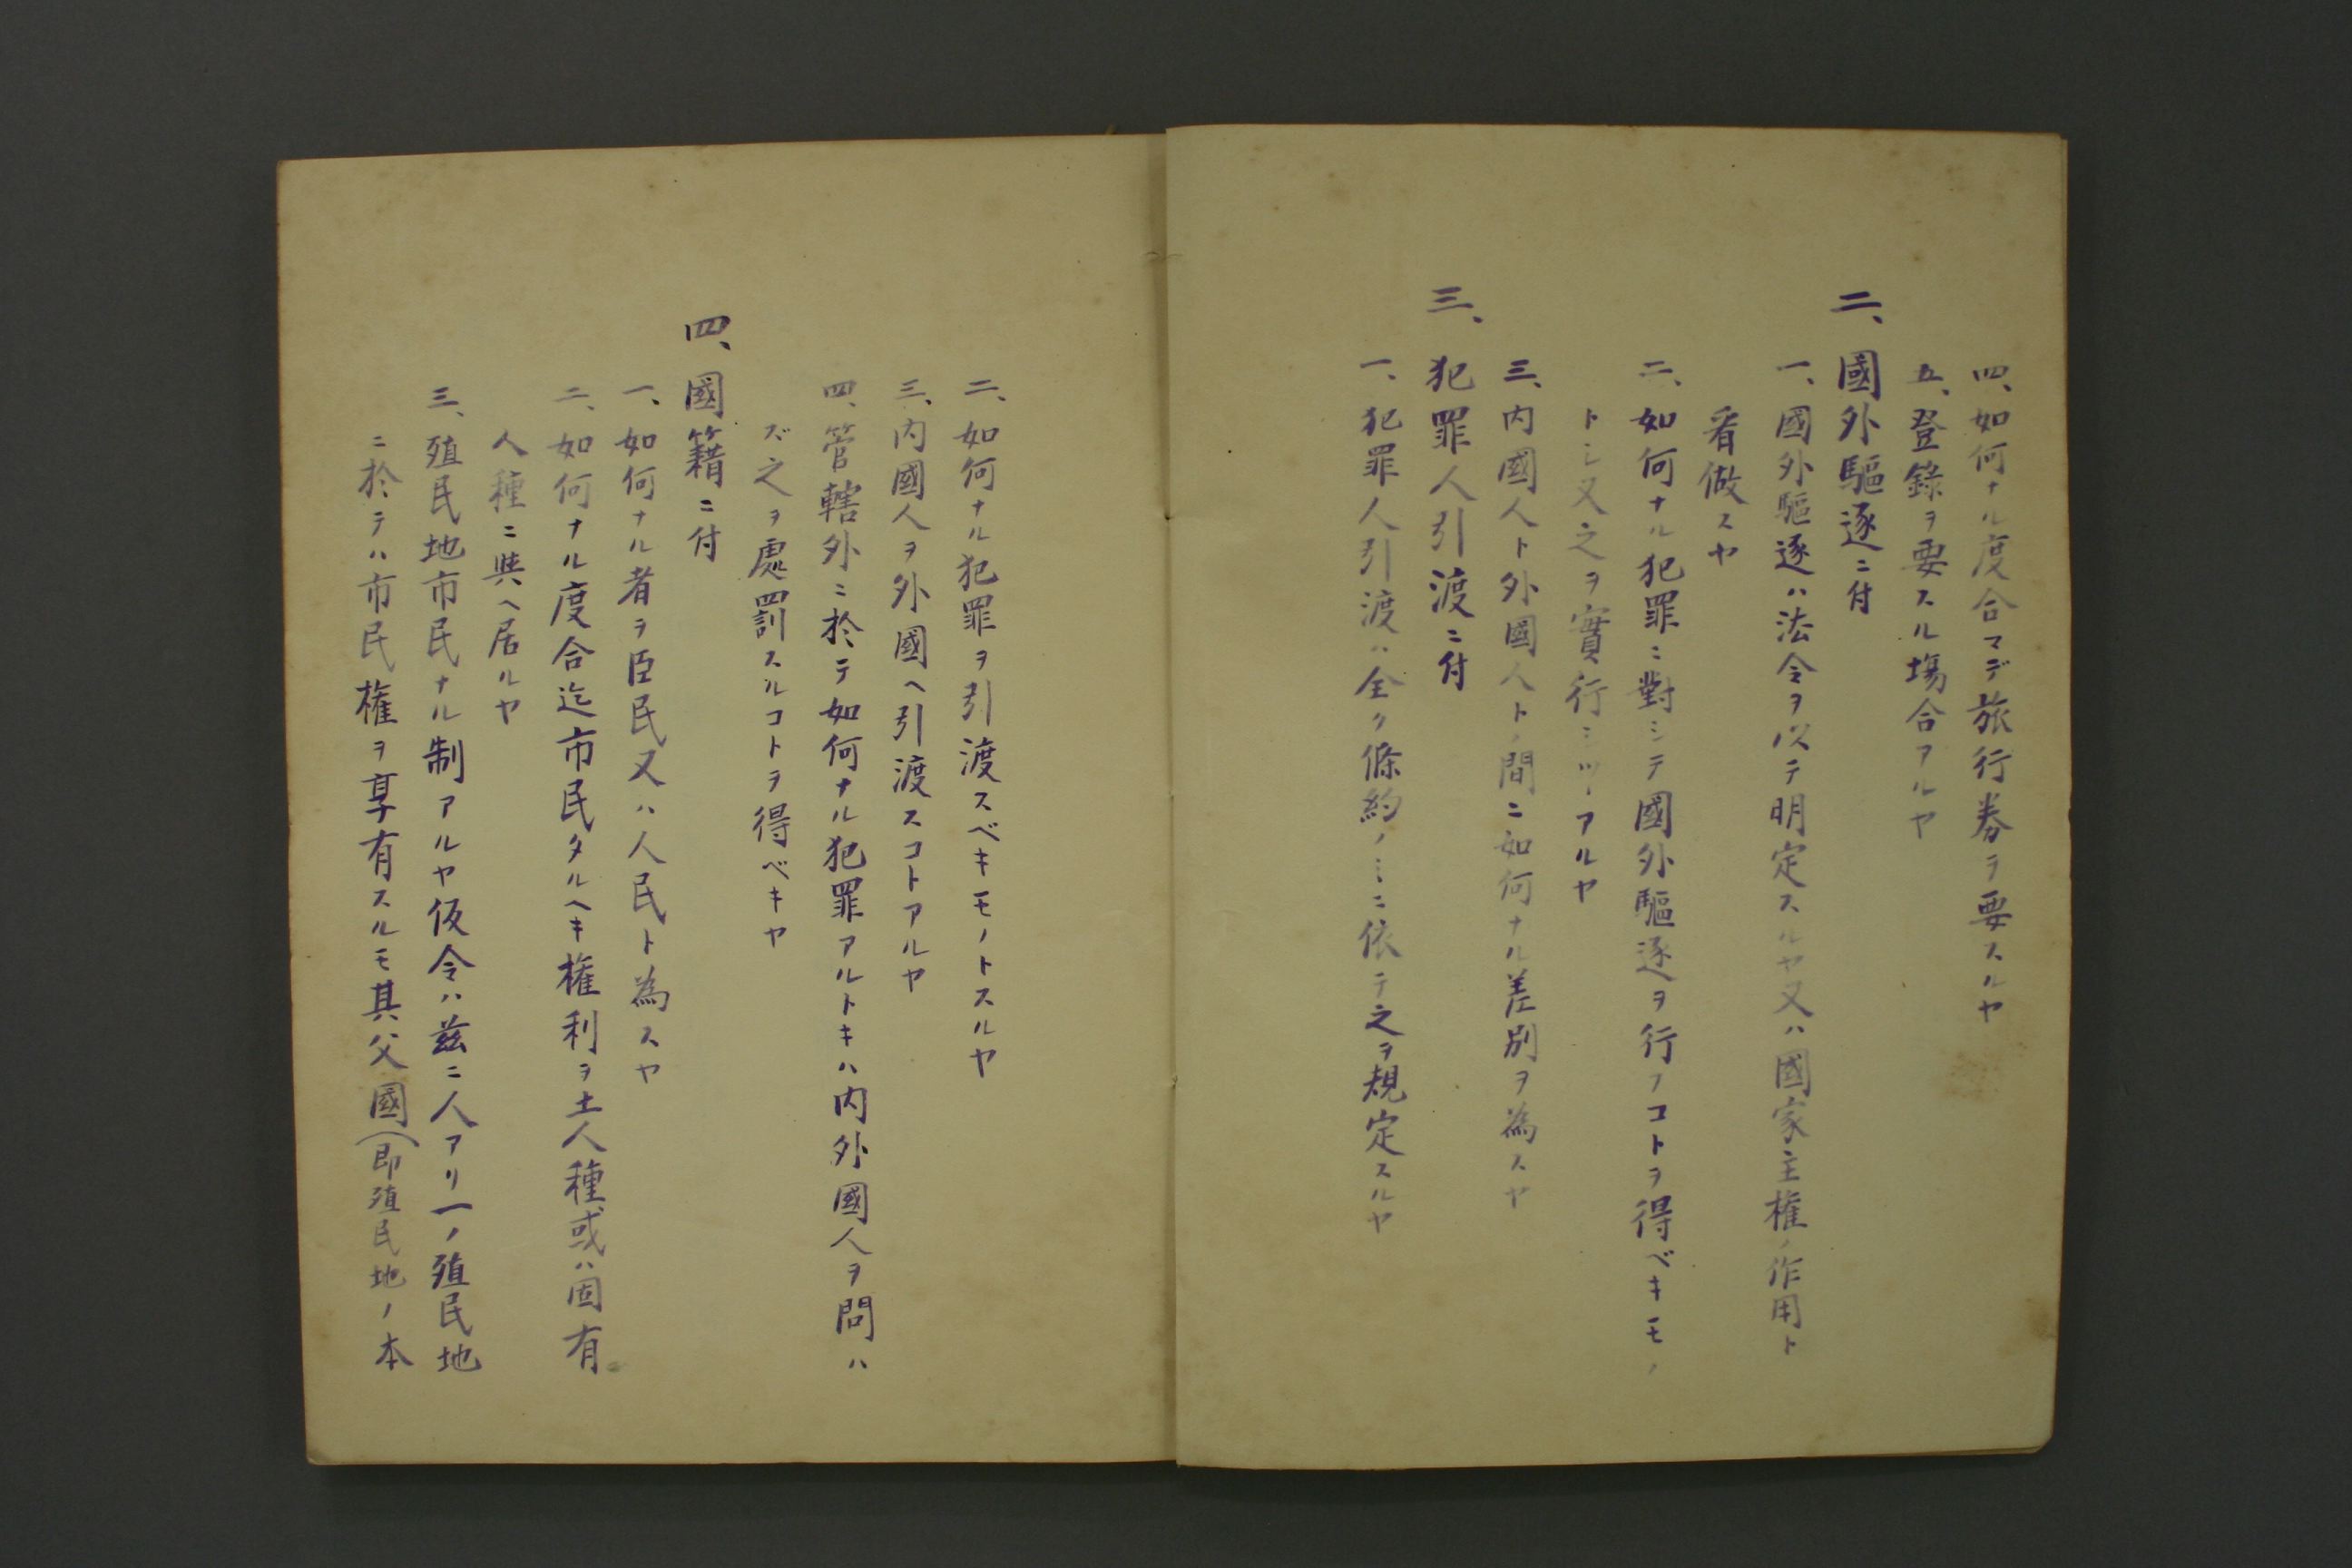 四、如何ナル度合マデ旅行券ヲ要スルヤ
五、登錄ヲ要スル場合アルヤ
二、國外驅逐ニ付
一、國外驅逐ハ法令ヲ以テ明定スルヤ又ハ國家主權ノ作用ト
看做スヤ
二、如何ナル犯罪ニ對シテ國外驅逐ヲ行フコトヲ得ベキモノ
トシ又之ヲ實行シツヽアルヤ
三、內國人ト外國人トノ間ニ如何ナル差別ヲ為スヤ
三、犯罪人引渡ニ付
一、犯罪人引渡ハ全ク條約ノミニ依テ之ヲ規定スルヤ
二、如何ナル犯罪ヲ引渡スベキモノトスルヤ
三、內國人ヲ外國ヘ引渡スコトアルヤ
四、管轄外ニ於テ如何ナル犯罪アルトキハ內外國人ヲ問ハ
ズ之ヲ處罰スルコトヲ得ベキヤ
四、國籍ニ付
一、如何ナル者ヲ臣民又ハ人民ト為スヤ
二、如何ナル度合迄市民タルヘキ權利ヲ土人種或ハ固有
人種ニ與ヘ居ルヤ
三、殖民地市民ナル制アルヤ仮令ハ茲ニ人アリ一ノ殖民地
ニ於テハ市民權ヲ享有スルモ其父國(即殖民地ノ本